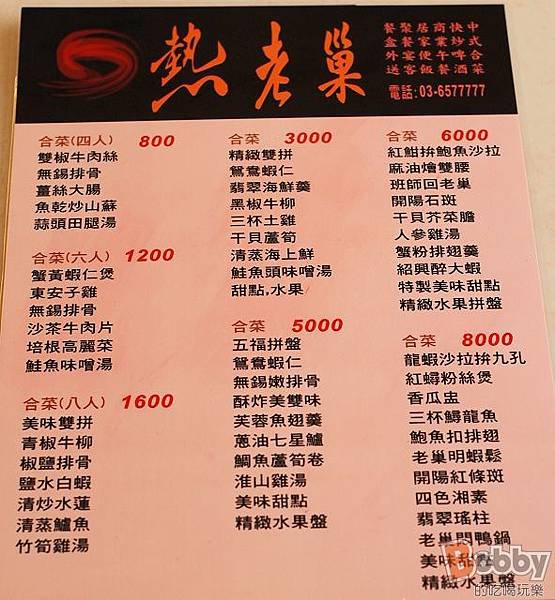 熱老巢
餐聚居商快中
盒餐家業炒式
外宴便午啤合
送客飯餐酒菜
電話:03-6577777
合菜(四人) 800
雙椒牛肉絲
無錫排骨
薑絲大腸
魚乾炒山蘇
蒜頭田腿湯
合菜(六人) 1200
蟹黃蝦仁煲
東安子雞
無錫排骨
沙茶牛肉片
培根高麗菜
鮭魚味噌湯
合菜(八人) 1600
美味雙拼
青椒牛柳
椒鹽排骨
鹽水白蝦
清炒水蓮
清蒸鱸魚
竹筍雞湯
合菜 3000
精緻雙拼
鴛鴦蝦仁
翡翠海鮮羹
黑椒牛柳
三杯土雞
干貝蘆筍
清蒸海上鮮
鮭魚頭味噌湯
甜點,水果
合菜 5000
五福拼盤
鴛鴦蝦仁
無錫嫩排骨
酥炸美雙味
芙蓉魚翅羹
蔥油七星鱸
鯛魚蘆筍卷
淮山雞湯
美味甜點
精緻水果盤
合菜 6000
紅魽拚鮑魚沙拉
麻油燴雙腰
班師回老巢
開陽石斑
干貝芥菜膽
人參雞湯
蟹粉排翅羹
紹興醉大蝦
特製美味甜點
精緻水果拼盤
合菜 8000
龍蝦沙拉拚九孔
紅蟳粉絲煲
香瓜盅
三杯鱘龍魚
鮑魚扣排翅
老巢明蝦鬆
開陽紅條斑
四色湘素
翡翠瑤柱
老巢悶鴨鍋
美味甜點
精緻水果盤
Bobby
的吃喝玩樂